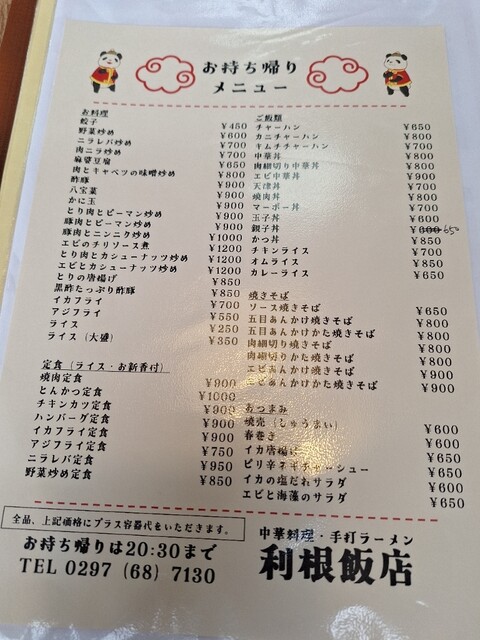 お持ち帰り
メニュー
お料理
餃子 ¥450
野菜炒め ¥600
ニラレバ炒め ¥700
肉ニラ炒め ¥700
麻婆豆腐 ¥650
肉とキャベツの味噌炒め ¥800
酢豚 ¥900
八宝菜 ¥900
かに玉 ¥900
とり肉とピーマン炒め ¥900
豚肉とピーマン炒め ¥900
豚肉とニンニク炒め ¥1000
エビのチリソース煮 ¥1200
とり肉とカシューナッツ炒め ¥1200
エビとカシューナッツ炒め
とりの唐揚げ ¥850
黒酢たっぷり酢豚
イカフライ ¥850
アジフライ ¥700
ライス ¥550
ライス（大盛） ¥250
¥350
定食（ライス・お新香付）
焼肉定食 ¥900
とんかつ定食 ¥1000
チキンカツ定食 ¥900
ハンバーグ定食 ¥900
イカフライ定食 ¥900
アジフライ定食 ¥750
ニラレバ定食 ¥950
野菜炒め定食 ¥850
ご飯類
チャーハン ¥650
カニチャーハン ¥800
キムチチャーハン ¥800
中華丼 ¥700
肉細切り中華丼 ¥800
エビ中華丼 ¥900
天津丼 ¥700
焼肉丼 ¥800
マーボー丼 ¥700
玉子丼 ¥600
親子丼 ¥600 650
かつ丼 ¥850
チキンライス ¥700
オムライス ¥850
カレーライス ¥650
焼きそば
ソース焼きそば ¥650
五目あんかけ焼きそば ¥800
五目あんかけかた焼きそば ¥800
肉細切り焼きそば ¥800
肉細切りかた焼きそば ¥800
エビあんかけ焼きそば ¥900
エビあんかけかた焼きそば ¥900
おつまみ
焼売（しゅうまい） ¥600
春巻き ¥600
イカ唐揚げ ¥650
ピリ辛ネギチャーシュー ¥650
イカの塩だれサラダ ¥600
エビと海藻のサラダ ¥650
全品、上記価格にプラス容器代をいただきます。
お持ち帰りは20:30まで
TEL 0297 (68) 7130
中華料理・手打ラーメン
利根飯店